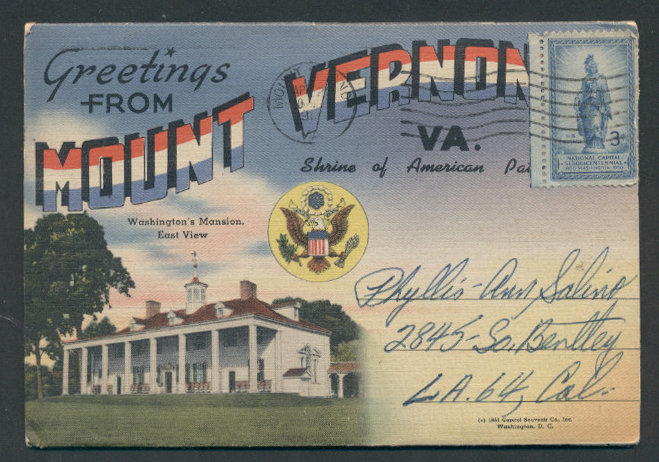 Greetings
FROM
MOUNT VERNON
VA.
Shrine of American
Washington's Mansion,
East View
NATIONAL CAPITAL
SESQUICENTENNIAL
3¢
Phyllis-Ann Salino
2845-So. Bentley
L.A. 64, Cal.
General Souvenir Co., Inc.
Washington, D. C.